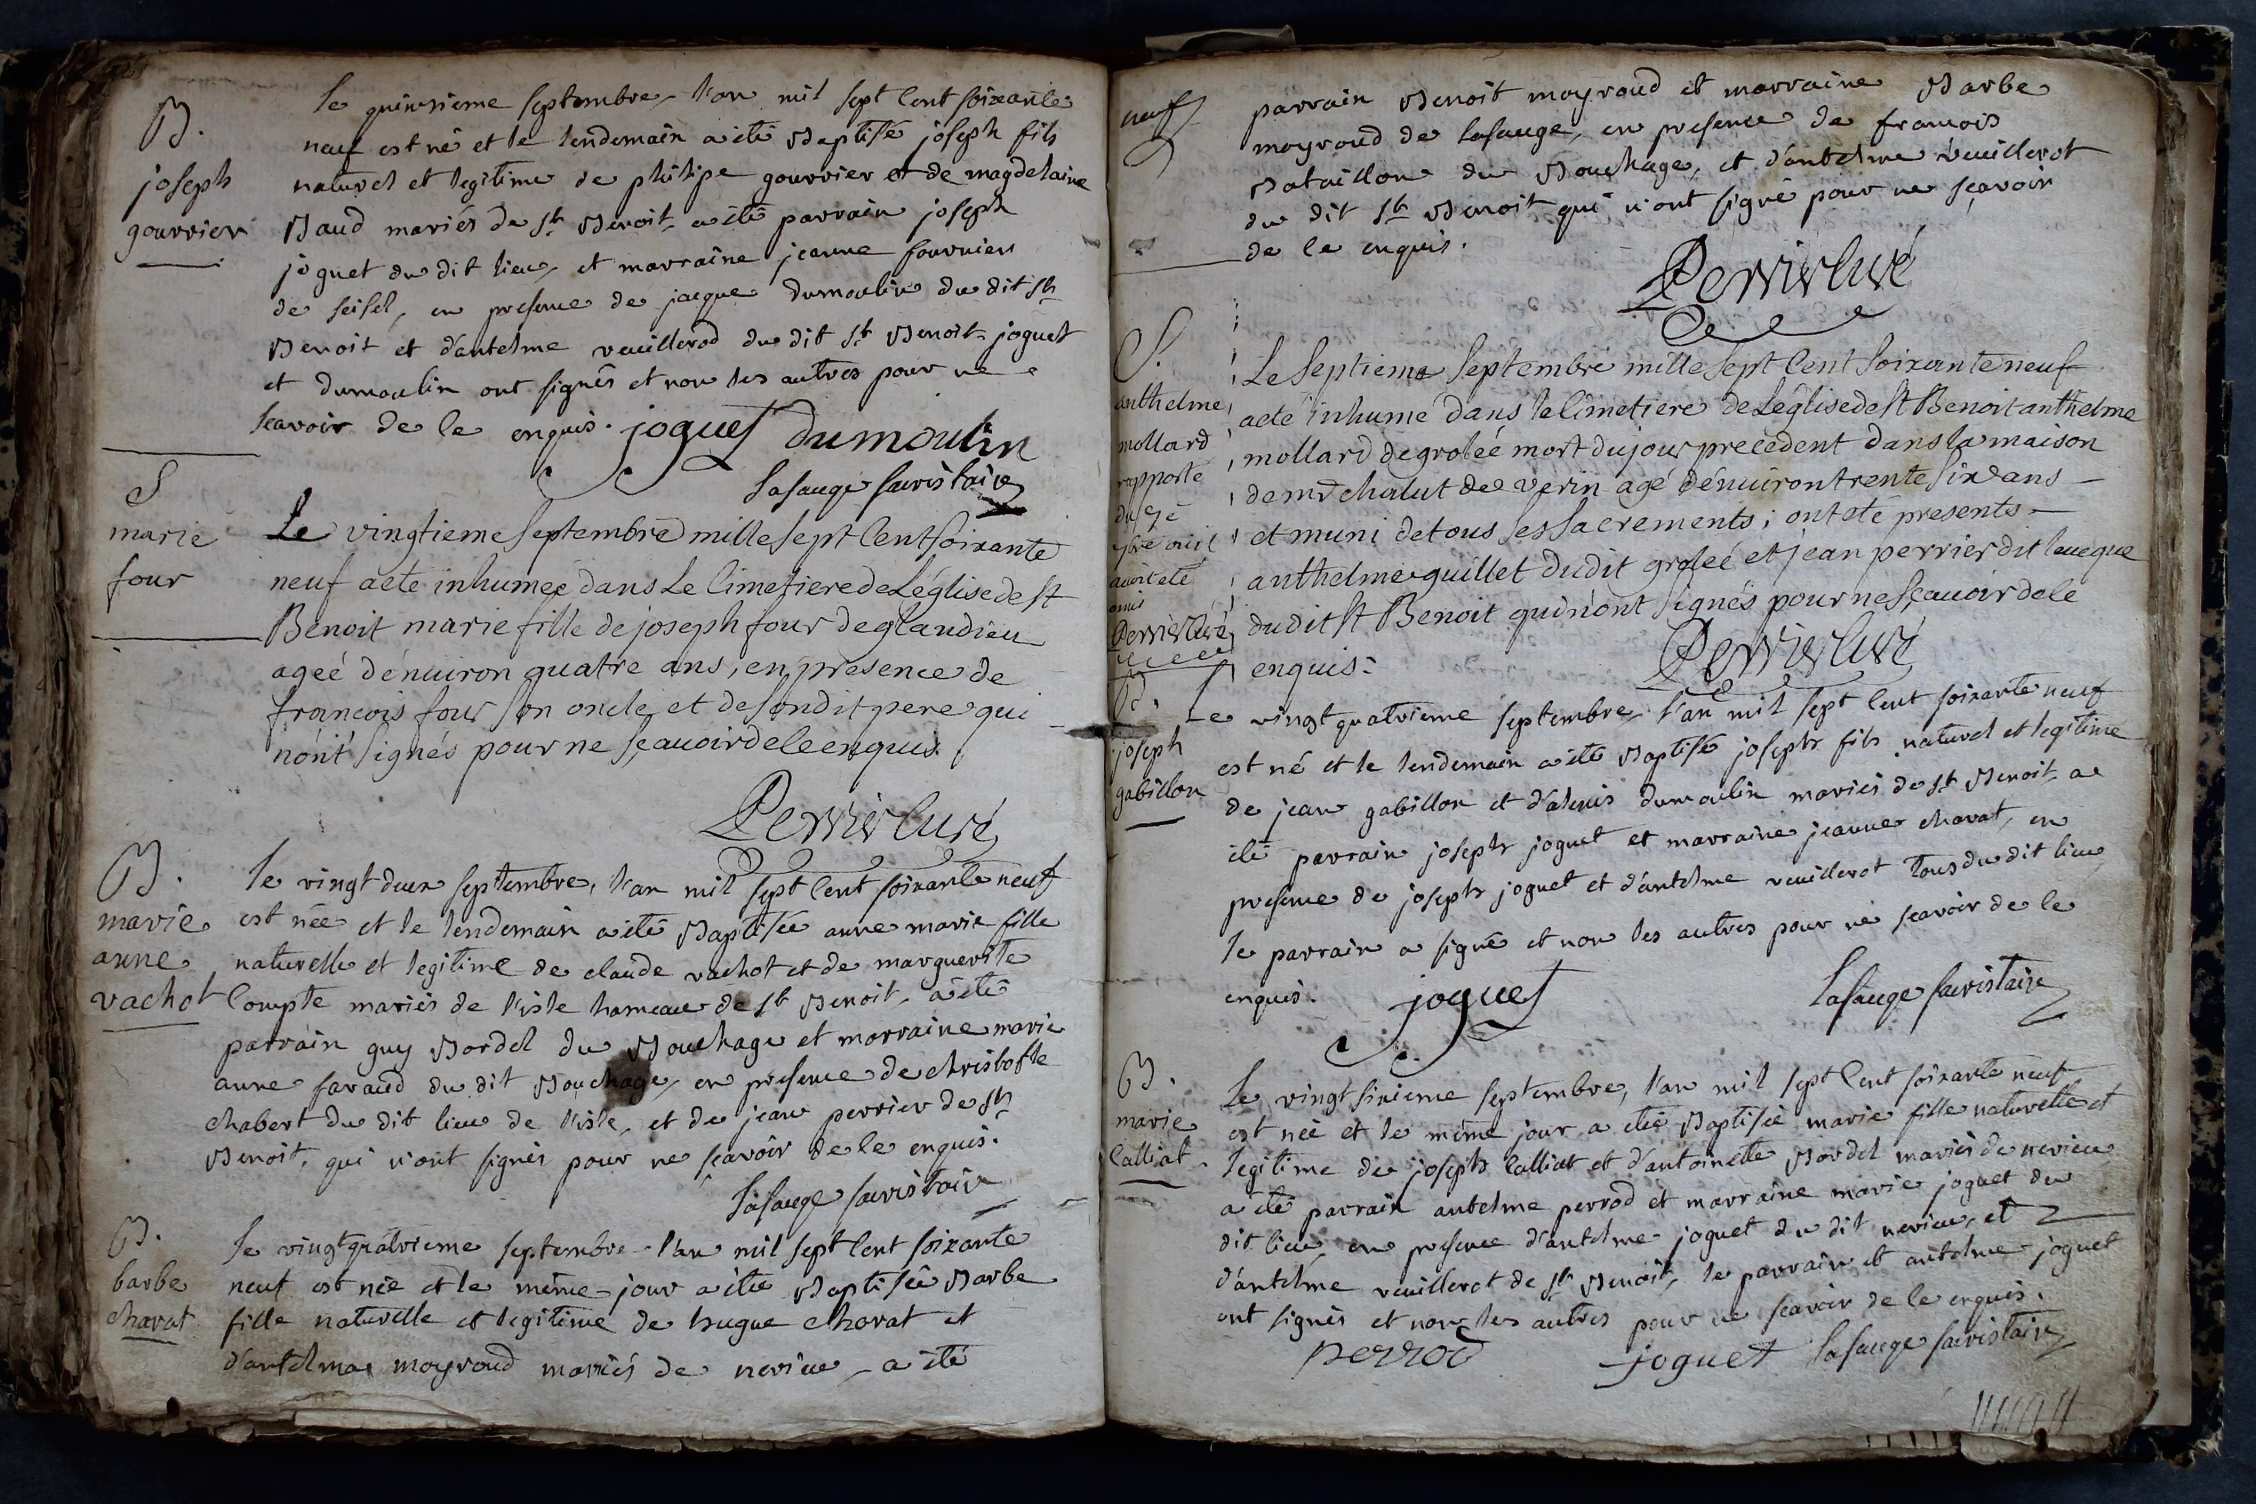 B.
joseph
gourrier
le quinzieme septembre, l'an mil sept Cent soixante
neuf est né et le lendemain a été Baptisé joseph fils
naturel et legitime de philipe gourrier et de magdelaine
Baud mariés de St Benoit, a été parrain joseph
joguet du dit lieu, et marraine jeanne fournier
de seisel, en presence de jacque dumoulin du dit St
Benoit et d'antelme veuillerod du dit St Benoit, joguet
et dumoulin ont signés et non les autres pour ne
scavoir de ce enquis. joguet dumoulin
Lasauge sacristain
S
marie
four
Le vingtieme septembre mille sept Cent soixante
neuf a eté inhumeé dans Le Cimetiere de L'église de St
Benoit marie fille de joseph four de glandieu
ageé d'énuiron quatre ans, en presence de
francois four son oncle, et de sondit pere qui
n'ont signés pour ne sçauoir de le enquis.
Perrier Curé
B.
marie
anne
vachot
le vingt deux septembre, l'an mil sept Cent soixante neuf
est née et le lendemain a été Baptisée anne marie fille
naturelle et legitime de claude vachot et de marguerite
Compte mariés de l'isle hameau de St Benoit, a été
parrain guy Bordel du Bouchage et marraine marie
anne favaud du dit Bouchage, en presence de christofle
chabert du dit lieu de l'isle, et de jean perrier de St
Benoit, qui n'ont signés pour ne scavoir de le enquis.
Lasauge sacristain
B.
barbe
charat
le vingt quatrieme septembre l'an mil sept Cent soixante
neuf est née et le même jour a été Baptisée Barbe
fille naturelle et legitime de hugue charat et
d'antelma moyroud mariés de nerieu, a été
neuf
parrain Benoit moyroud et marraine Barbe
moyroud de lasauge, en presence de francois
Bataillon du Bouchage, et d'antelme veuillerot
du dit St Benoit qui n'ont signé pour ne sçavoir
de le enquis.
Perrier Curé
S.
anthelme
mollard
rapporté
avoit eté
omis
Perrier Curé
Le septieme septembre mille sept Cent soixante neuf
a eté inhumé dans le Cimetiere de L'église de St Benoit anthelme
mollard de groleé mort du jour precedent dans la maison
de mr chalut de verin agé d'énuiron trente six ans
et muni de tous ses sacrements; ont eté presents
anthelme guillet dudit groleé et jean perrier dit leueque
dudit St Benoit qui n'ont signés pour ne sçauoir de le
enquis.
Perrier Curé
B.
joseph
gabillon
Le vingt quatrieme septembre, l'an mil sept Cent soixante neuf
est né et le lendemain a été Baptisé joseph fils naturel et legitime
de jean gabillon et d'alexis dumoulin mariés de St Benoit, a
été parrain joseph joguet et marraine jeanne charat, en
presence de joseph joguet et d'antelme veuillerot tous du dit lieu,
le parrain a signé et non les autres pour ne scavoir de le
enquis. joguet Lasauge sacristain
B.
marie
Calliat
Le vingt sixieme septembre, l'an mil sept Cent soixante neuf
est née et le même jour a été Baptisée marie fille naturelle et
legitime de joseph Calliat et d'antoinette Bordel mariés de nerieu
a été parrain antelme perrod et marraine marie joguet du
dit lieu, en presence d'antelme joguet du dit nerieu, et
d'antelme veuillerot de St Benoit, le parrain et antelme joguet
ont signés et non les autres pour ne scavoir de le enquis.
perrod joguet Lasauge sacristain